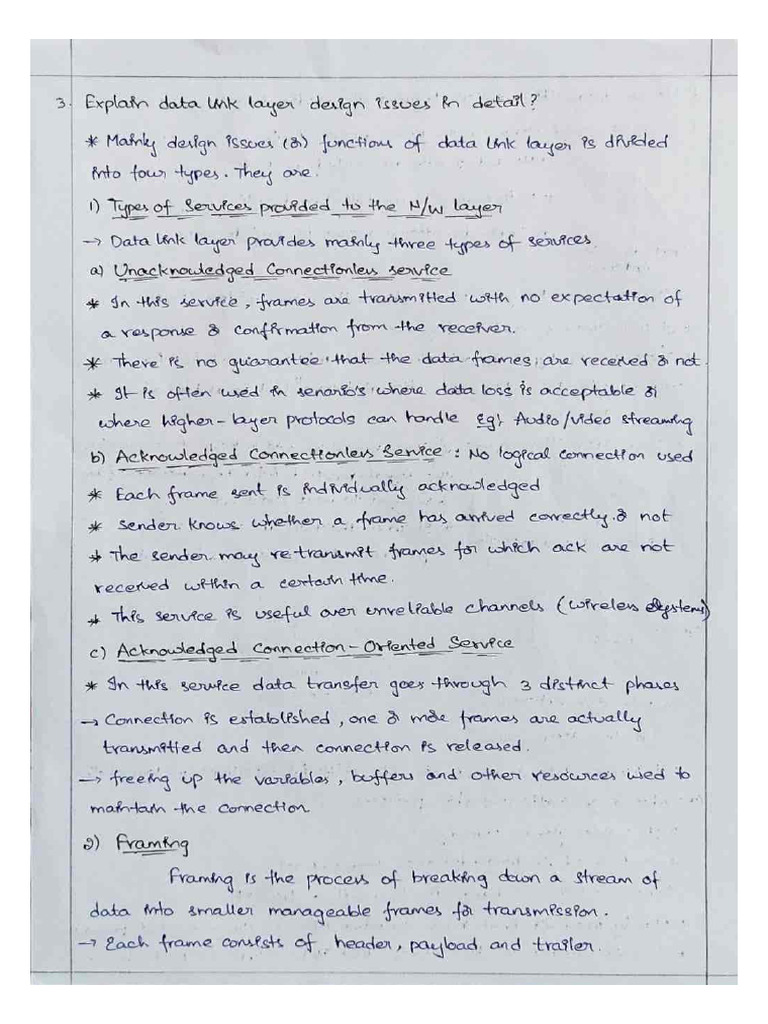 3. Explain data link layer design issues in detail?
* Mainly design issues (or) functions of data link layer is divided
into four types. They are.
1) Types of Services provided to the N/W layer
→ Data link layer provides mainly three types of services
a) Unacknowledged Connectionless service
* In this service, frames are transmitted with no expectation of
a response or confirmation from the receiver.
* There is no guarantee that the data frames, are received or not.
* It is often used in senario's where data loss is acceptable or
where higher-layer protocols can handle Eg: Audio/video streaming
b) Acknowledged Connectionless Service : No logical connection used
* Each frame sent is individually acknowledged
* Sender knows whether a frame has arrived correctly or not
* The sender may re transmit frames for which ack are not
received within a certain time.
* This service is useful over unreliable channels (wireless systems)
c) Acknowledged Connection-Oriented Service
* In this service data transfer goes through 3 distinct phases
→ Connection is established, one or more frames are actually
transmitted and then connection is released.
→ freeing up the variables, buffers and other resources used to
maintain the connection
2) Framing
Framing is the process of breaking down a stream of
data into smaller manageable frames for transmission.
→ Each frame consists of header, payload and trailer.